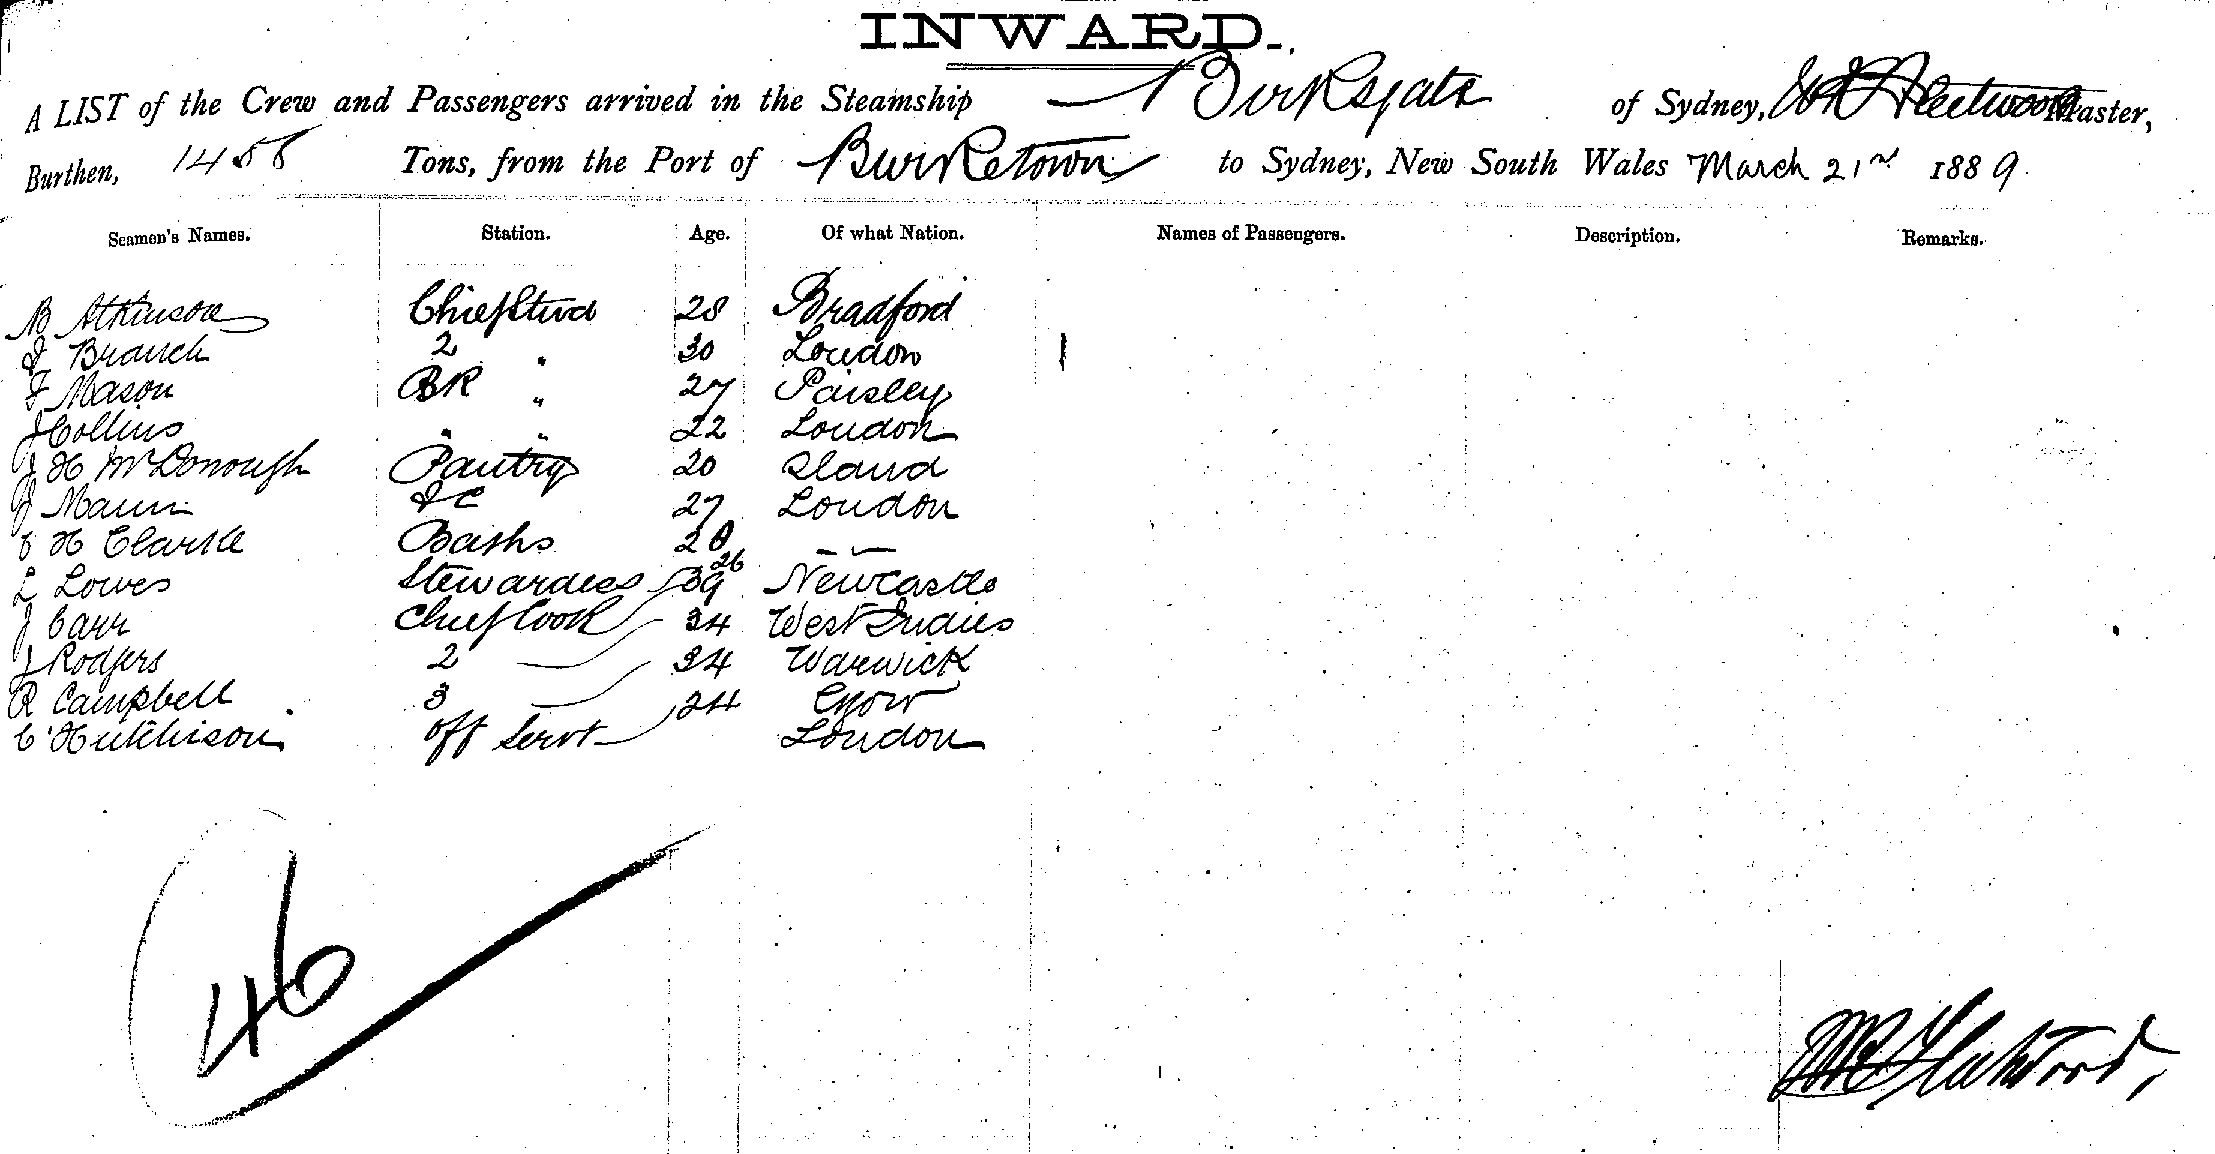 INWARD.
A LIST of the Crew and Passengers arrived in the Steamship Birksgate of Sydney, Fleetwood Master,
Burthen, 1458 Tons, from the Port of Burketown to Sydney, New South Wales March 21st 1889.
Seamen's Names. Station. Age. Of what Nation. Names of Passengers. Description. Remarks.
B Atkinson Chief Stwd 28 Bradford
J Branch 2 " 30 London
F Mason BR " 27 Paisley
J Collins " " 22 London
J H McDonough Pantry 20 Iland
J Mann 27 London
C H Clarke Baths 20 — —
L Lowes Stewardess 39 Newcastle
J Carr Chief Cook 26 34 West Indies
J Rodgers 2 — 34 Warwick
R Campbell 3 — 24
C Hutchison off Servt London
46
Fleetwood